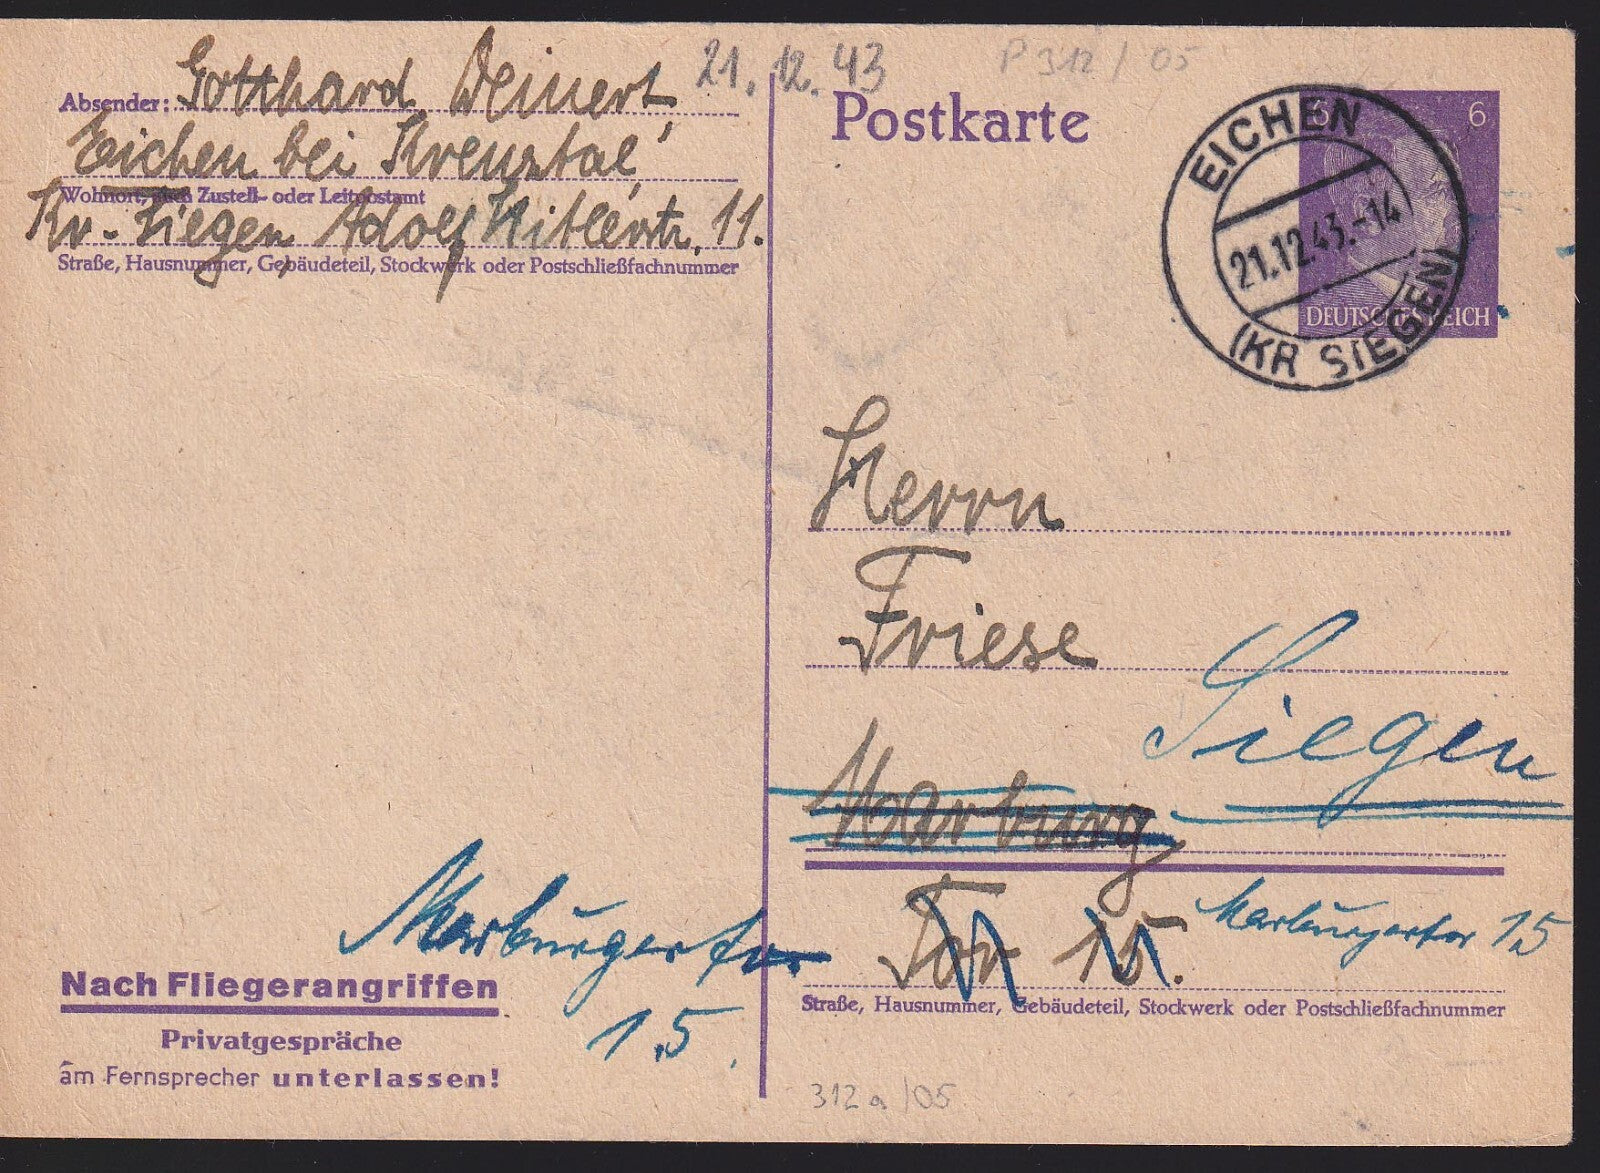 21.12.43
P 312/05
Absender: Gotthard Deinert
Eichen bei Kreuztal,
Wohnort, auch Zustell- oder Leitpostamt
Kr. Siegen Adolf Hitlerstr. 11.
Straße, Hausnummer, Gebäudeteil, Stockwerk oder Postschließfachnummer
Postkarte
6 6
DEUTSCHES REICH
EICHEN
21.12.43.-14
(KR SIEGEN)
Herrn
Friese
Siegen
Marburg
Tor 15.
Marburgertor 15
Straße, Hausnummer, Gebäudeteil, Stockwerk oder Postschließfachnummer
Marburgertor
15.
Nach Fliegerangriffen
Privatgespräche
am Fernsprecher unterlassen!
312a/05